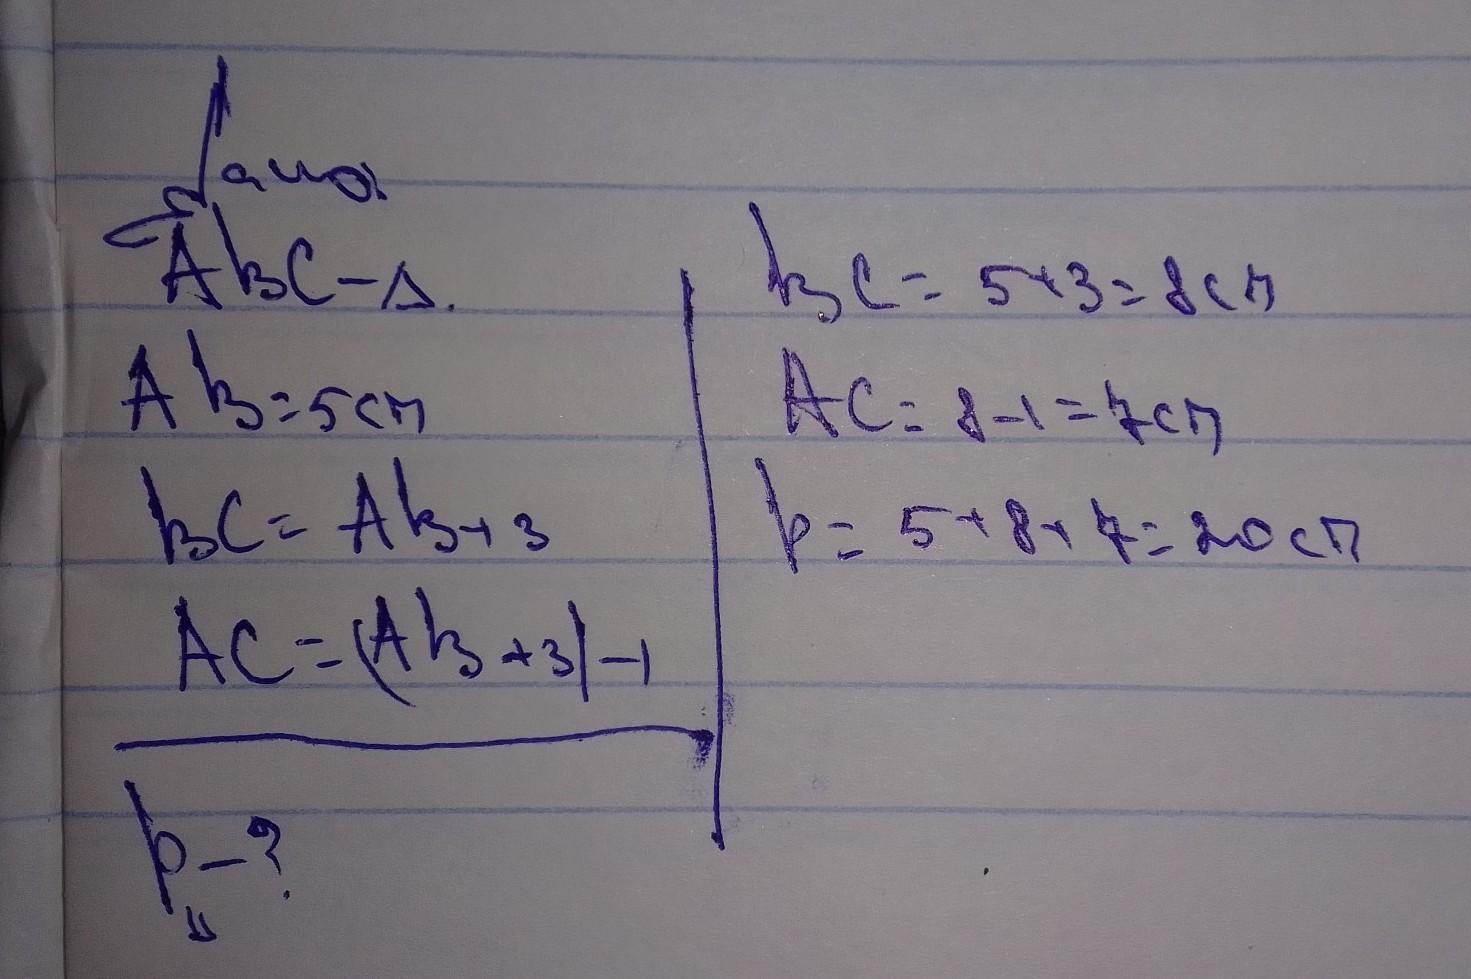 Дано
ABC - Δ.
AB = 5 см
BC = AB + 3
AC = (AB + 3) - 1
P - ?
BC = 5 + 3 = 8 см
AC = 8 - 1 = 7 см
P = 5 + 8 + 7 = 20 см